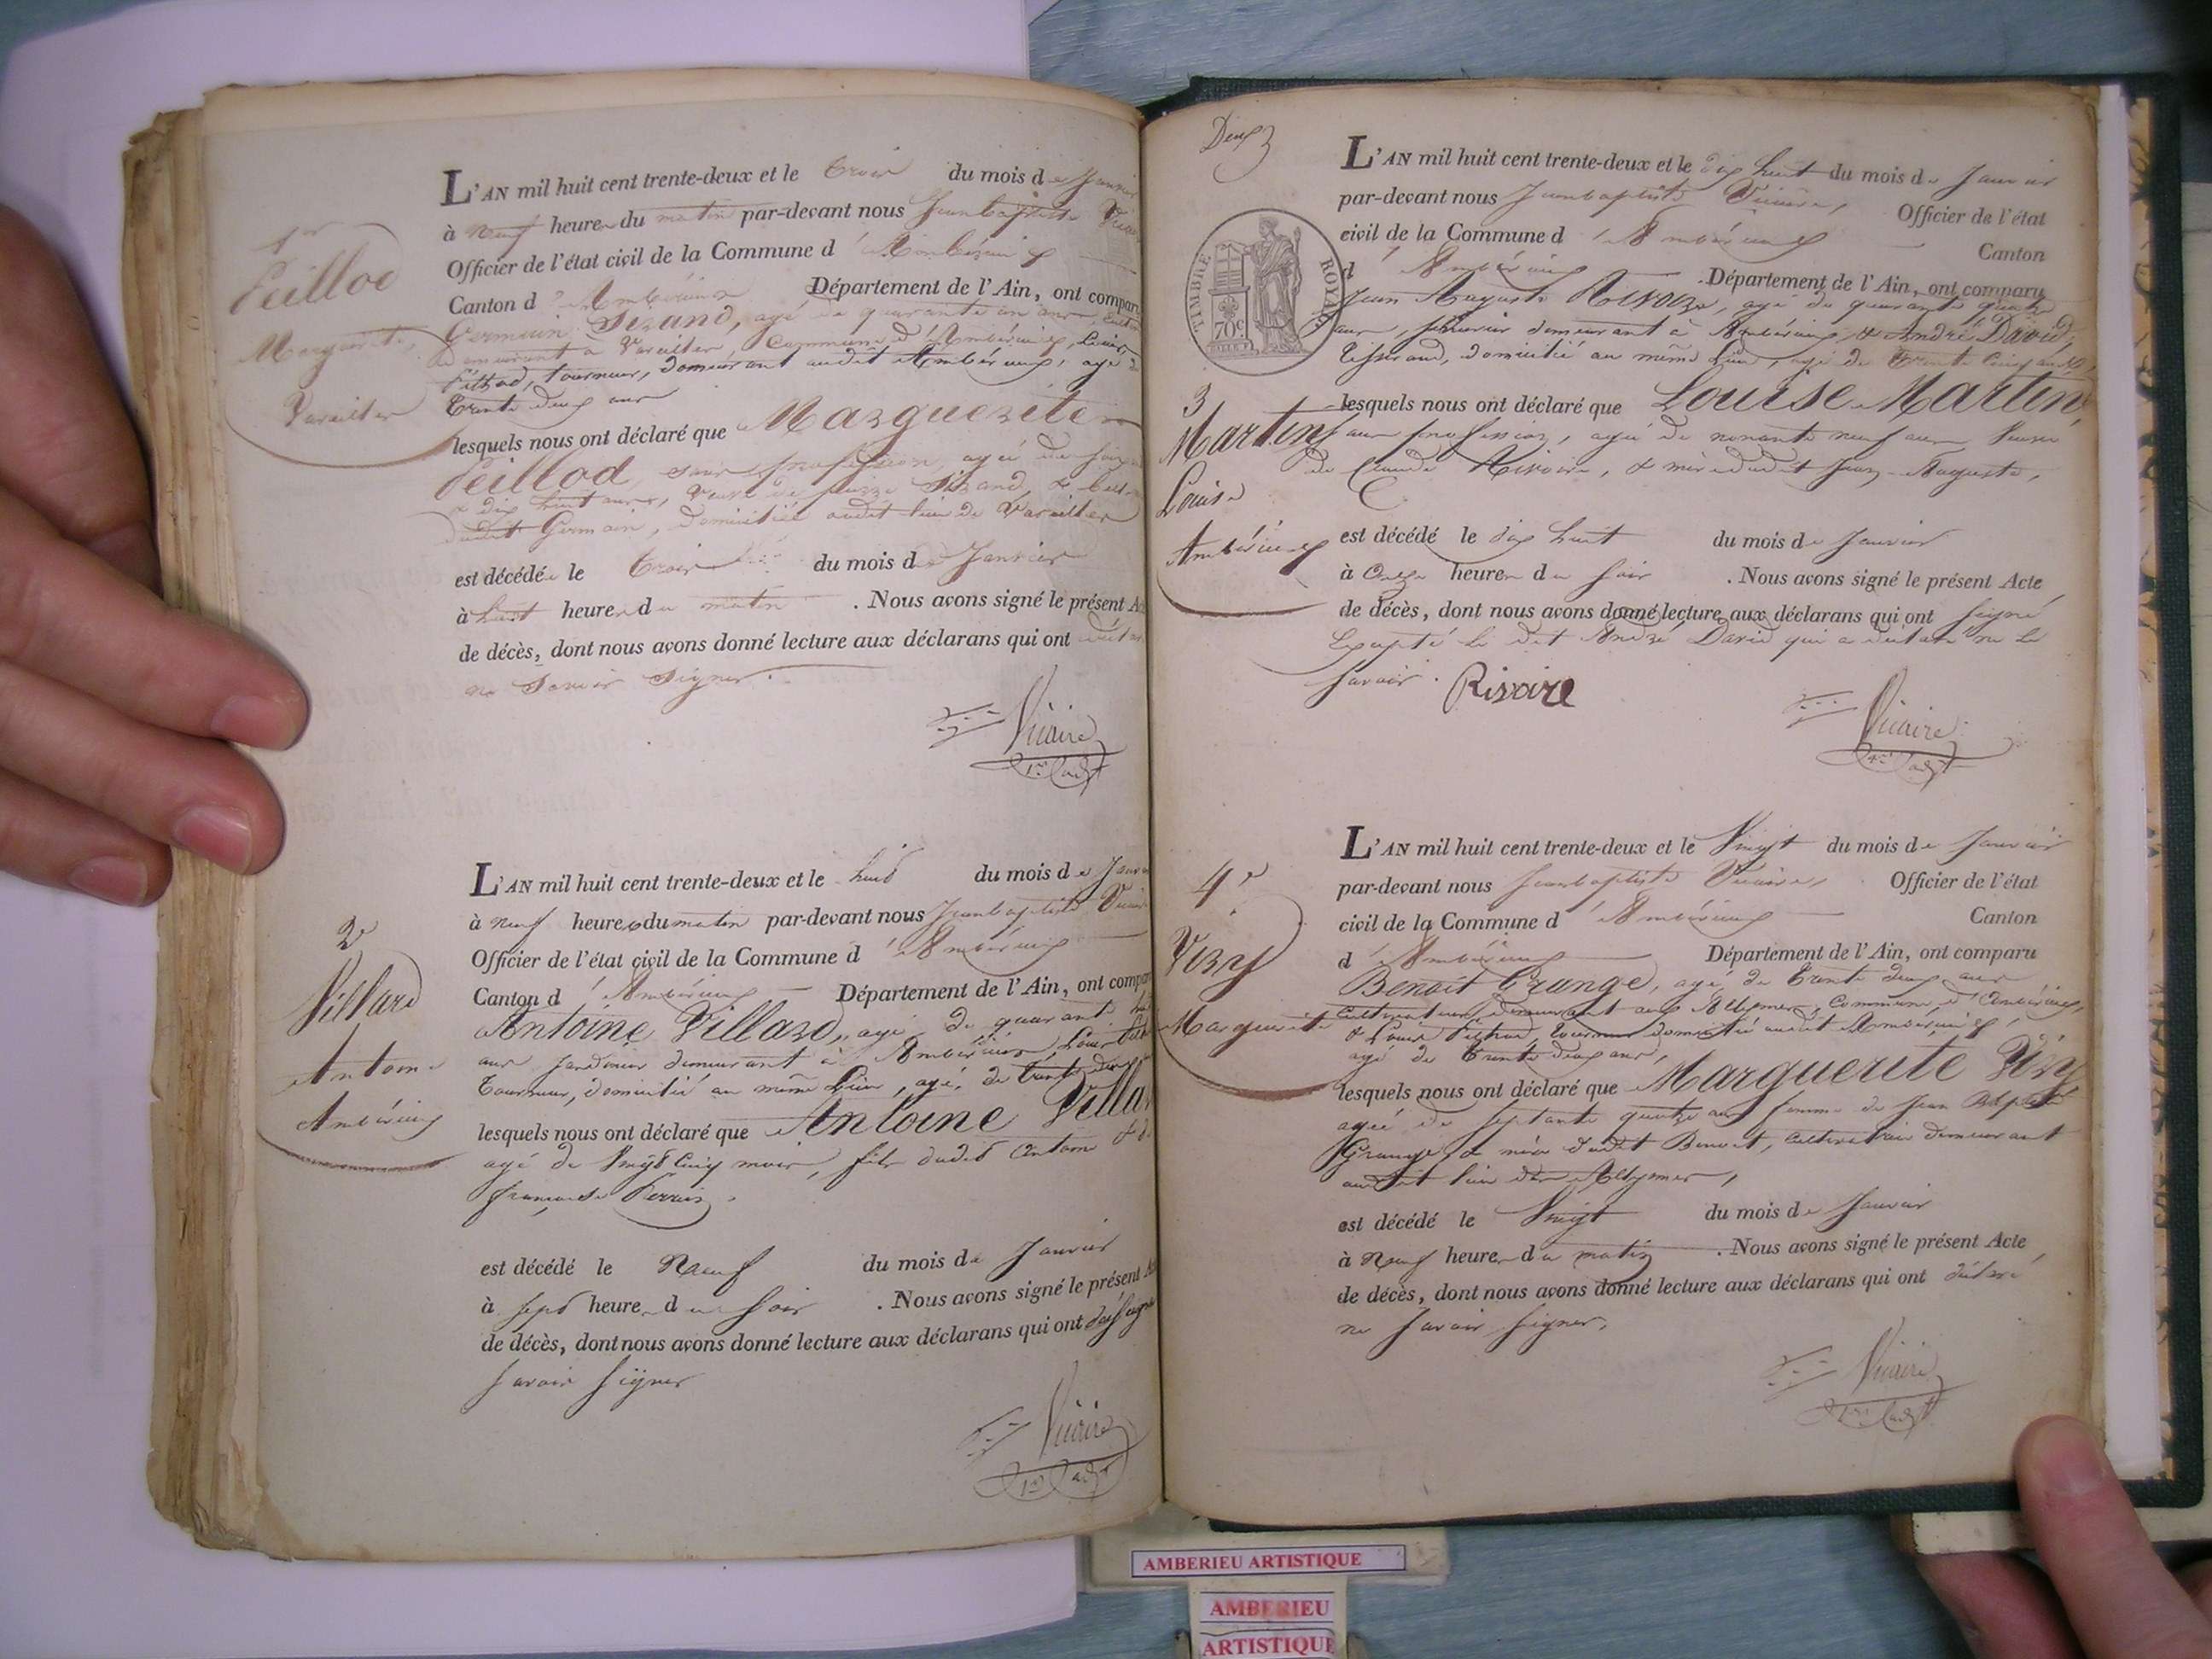 1er
Peillod
Marguerite,
Vareilles
L'AN mil huit cent trente-deux et le trois du mois de Janvier
à neuf heures du matin par-devant nous Jean baptiste
Officier de l'état civil de la Commune d'Ambérieux
Canton d'Ambérieux Département de l'Ain, ont compar
Germain Sizand, agé de quarante un ans,
demeurant à Vareilles, Commune d'Ambérieux, Louis
tourneur, demeurant audit Ambérieux, agé
trente deux ans
lesquels nous ont déclaré que Marguerite
Peillod sans profession, agée de
& dix huit ans, Veuve de Sizand, &
dudit Germain, domiciliée audit lieu de Vareilles
est décédée le trois du mois de Janvier
à huit heures du matin. Nous avons signé le présent
de décès, dont nous avons donné lecture aux déclarans qui ont
ne Savoir Signer.
Vicaire
1er adjt
2e
Villard
Antoine
Ambérieux
L'AN mil huit cent trente-deux et le huit du mois de
à neuf heures du matin par-devant nous Jean baptiste
Officier de l'état civil de la Commune d'Ambérieux
Canton d'Ambérieux Département de l'Ain, ont compar
Antoine Villard, agé de quarante
ans demeurant à Ambérieux, Louis
tourneur, domicilié au même lieu, agé de trente deux
lesquels nous ont déclaré que Antoine Villar
agé de Vingt Cinq mois, fils dudit Antoine &
françoise Perrin.
est décédé le Neuf du mois de Janvier
à sept heures du soir. Nous avons signé le présent
de décès, dont nous avons donné lecture aux déclarans qui ont
savoir signer
Vicaire
1er adjt
Deux
TIMBRE ROYAL
70c
3
Martin
Louise
Ambérieux
L'AN mil huit cent trente-deux et le dix huit du mois de Janvier
par-devant nous Jean baptiste Vicaire, Officier de l'état
civil de la Commune d'Ambérieux Canton
d'Ambérieux Département de l'Ain, ont comparu
Jean Auguste Rivoire, agé de quarante quatre
ans, demeurant à Ambérieux, & André David,
tisserand, domicilié au même lieu, agé de trente Cinq ans,
lesquels nous ont déclaré que Louise Martin
sans profession, agée de nonante neuf ans Veuve
de Claude Rivoire, & mère dudit Jean Auguste,
est décédé le dix huit du mois de Janvier
à Onze heures du soir. Nous avons signé le présent Acte
de décès, dont nous avons donné lecture aux déclarans qui ont signé
Excepté le dit André David qui a déclaré ne le
savoir. Rivoire
Vicaire
1er adjt
4e
Vizy
Marguerite
L'AN mil huit cent trente-deux et le Vingt du mois de Janvier
par-devant nous Jean baptiste Vicaire, Officier de l'état
civil de la Commune d'Ambérieux Canton
d'Ambérieux Département de l'Ain, ont comparu
Benoit Grange, agé de trente deux ans
Cultivateur demeurant aux Allymes, Commune d'Ambérieux,
& Louis tourneur domicilié audit Ambérieux,
agé de trente deux ans,
lesquels nous ont déclaré que Marguerite Vizy
agée de septante quatre ans femme de Jean Baptiste
Grange, & mère dudit Benoit, Cultivatrice demeurant
audit lieu des Allymes,
est décédé le Vingt du mois de Janvier
à Neuf heures du matin. Nous avons signé le présent Acte
de décès, dont nous avons donné lecture aux déclarans qui ont déclaré
ne savoir signer.
Vicaire
1er adjt
AMBERIEU ARTISTIQUE
AMBERIEU
ARTISTIQUE